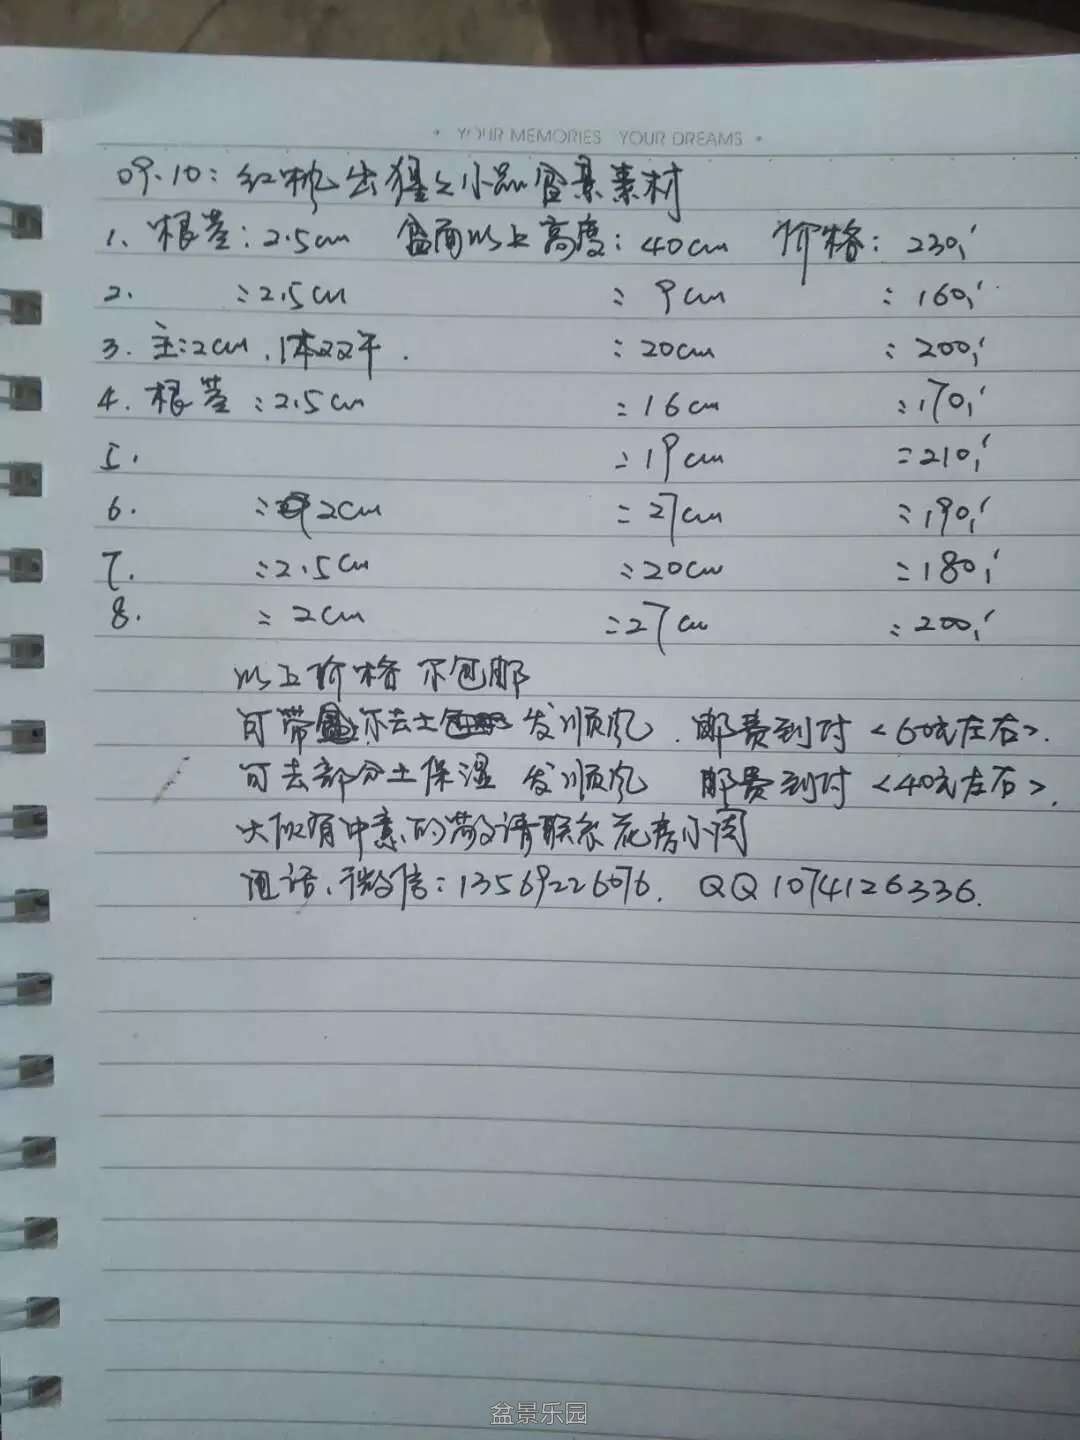 · YOUR MEMORIES YOUR DREAMS ·
09.10：红枫出猩之小品盆景素材
1、根茎：2.5cm 盆面以上高度：40cm 价格：230,
2. ：2.5cm ：9cm ：160,
3. 主：2cm，1本双干. ：20cm ：200,
4. 根茎：2.5cm ：16cm ：170,
5. ：19cm ：210,
6. ：2cm ：27cm ：190,
7. ：2.5cm ：20cm ：180,
8. ：2cm ：27cm ：200,
以上价格不包邮
可带盆 不去土 发顺风. 邮费到付<60元左右>.
可去部分土保湿 发顺风 邮费到付<40元左右>.
大伙有中意的请联系花房小
电话、微信：13569226076. QQ 1074126336.
盆景乐园